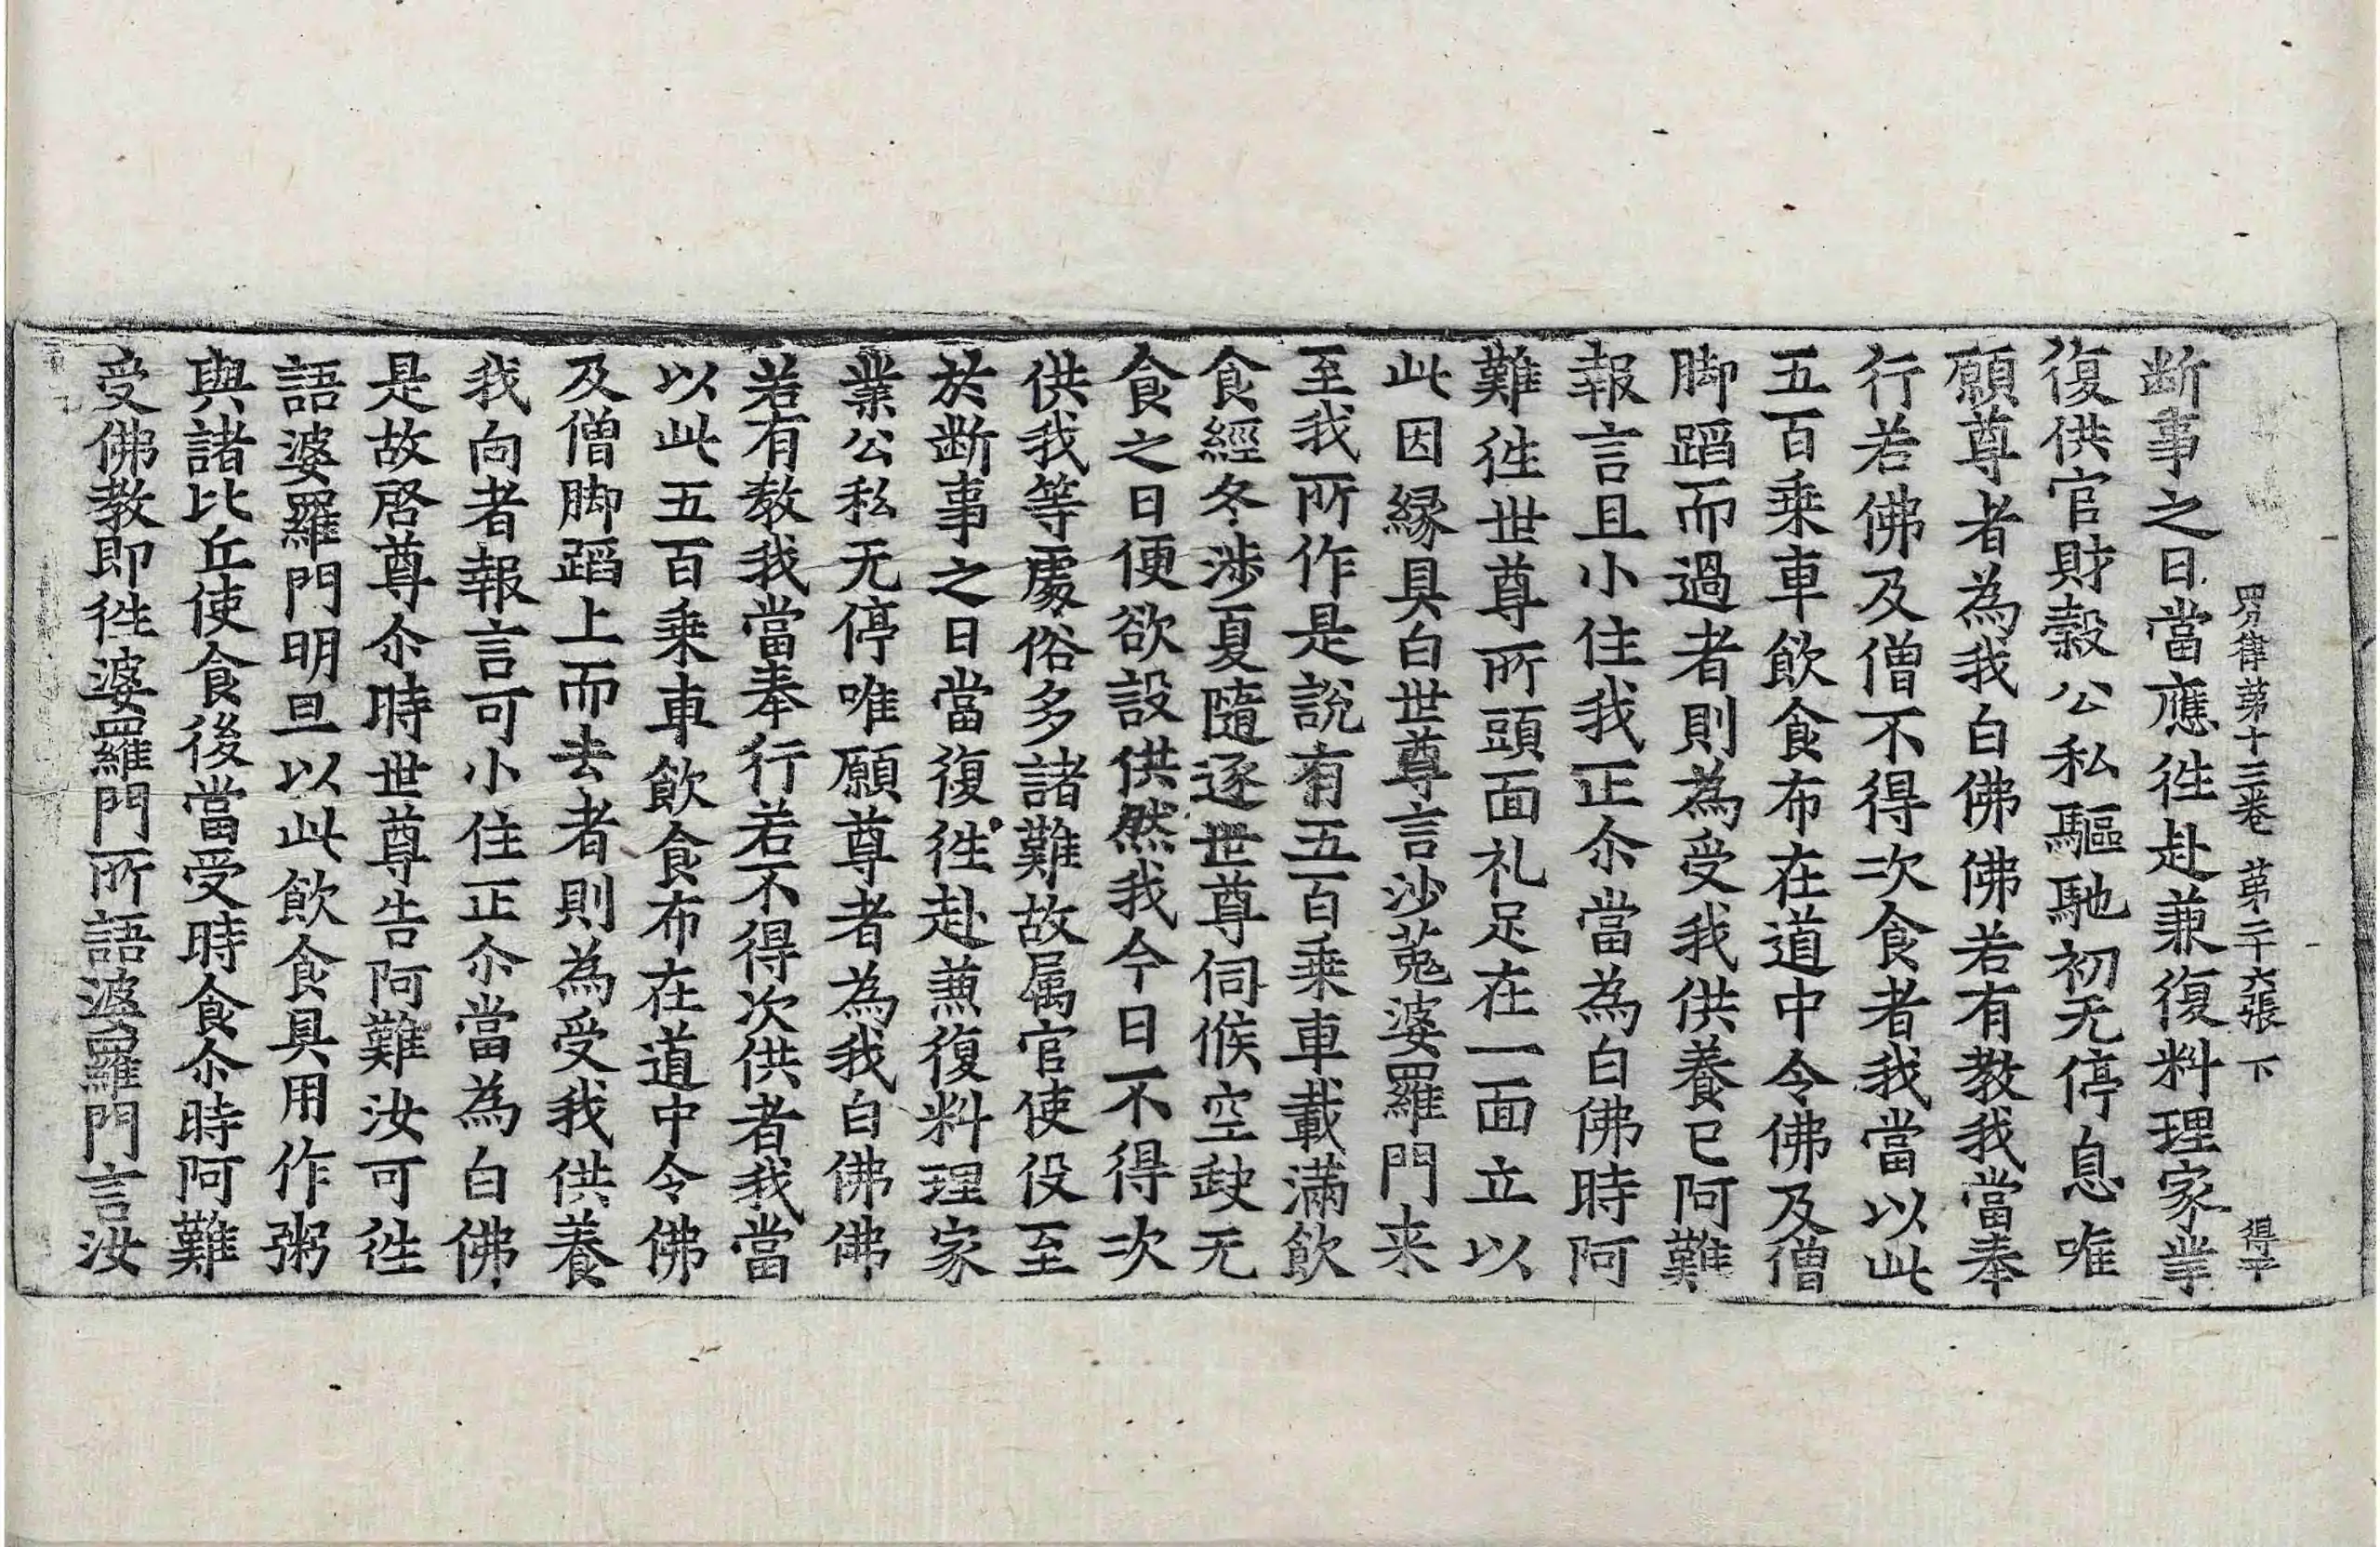 四分律第十三卷 第二十六張 下 得平
断事之日當應徃赴兼復料理家業
復供官財穀公私驅馳初无停息唯
願尊者為我白佛佛若有教我當奉
行若佛及僧不得次食者我當以此
五百乗車飲食布在道中令佛及僧
脚蹈而過者則為受我供養已阿難
報言且小住我正尒當為白佛時阿
難徃世尊所頭面礼足在一面立以
此因縁具白世尊言沙菟婆羅門来
至我所作是說有五百乗車載滿飲
食經冬渉夏隨逐世尊伺候空䡖无
食之日便欲設供然我今日不得次
供我等處俗多諸難故属官使役至
於断事之日當復徃赴兼復料理家
業公私无停唯願尊者為我白佛佛
若有教我當奉行若不得次供者我當
以此五百乗車飲食布在道中令佛
及僧脚蹈上而去者則為受我供養
我向者報言可小住正尒當為白佛
是故啓尊尒時世尊告阿難汝可徃
語婆羅門明旦以此飲食具用作粥
與諸比丘使食後當受時食尒時阿難
受佛教即徃婆羅門所語婆羅門言汝